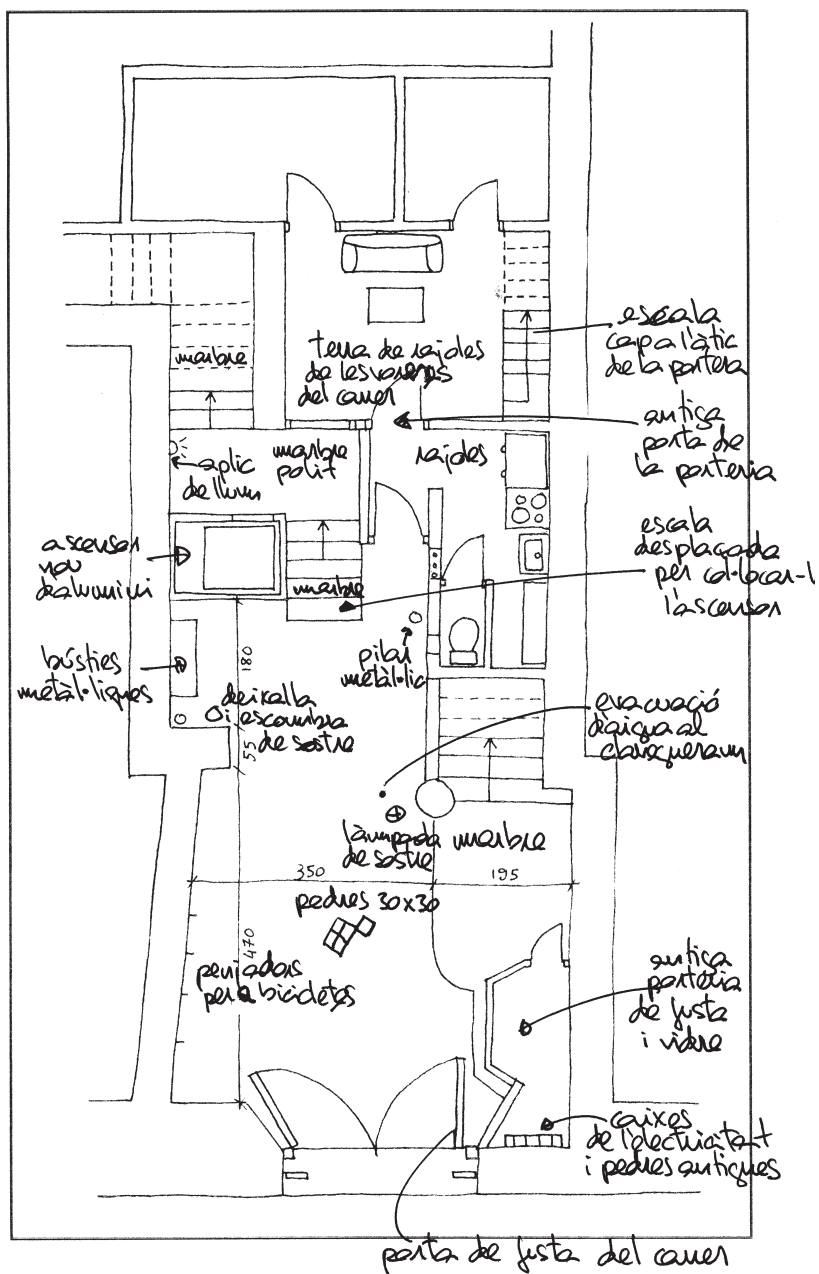 escala
cap a l'àtic
de la portera
marbre
terra de rajoles
de les voreres
del carrer
antiga
porta de
la porteria
marbre
polit
rajoles
aplic
de llum
escala
desplaçada
per col·locar-l
l'ascensor
ascensor
nou
d'alumini
marbre
bústies
metàl·liques
180
pilar
metàl·lic
deixalla
i escombra
de sostre
55
evacuació
d'aigua al
clavegueram
làmpada
de sostre
marbre
350
195
pedres 30x30
470
penjadors
per a bicicletes
antiga
porteria
de fusta
i vidre
caixes
de l'electricitat
i pedres antigues
porta de fusta del carrer